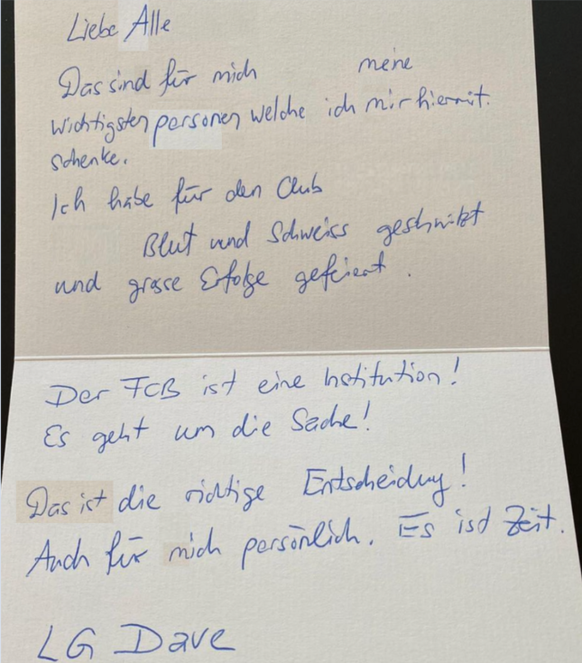 Liebe Alle
Das sind für mich meine
wichtigsten personen welche ich mir hiermit
schenke.
Ich habe für den Club
Blut und Schweiss geschwitzt
und grosse Erfolge gefeiert.
Der FCB ist eine Institution!
Es geht um die Sache!
Das ist die richtige Entscheidung!
Auch für mich persönlich. Es ist Zeit.
LG Dave